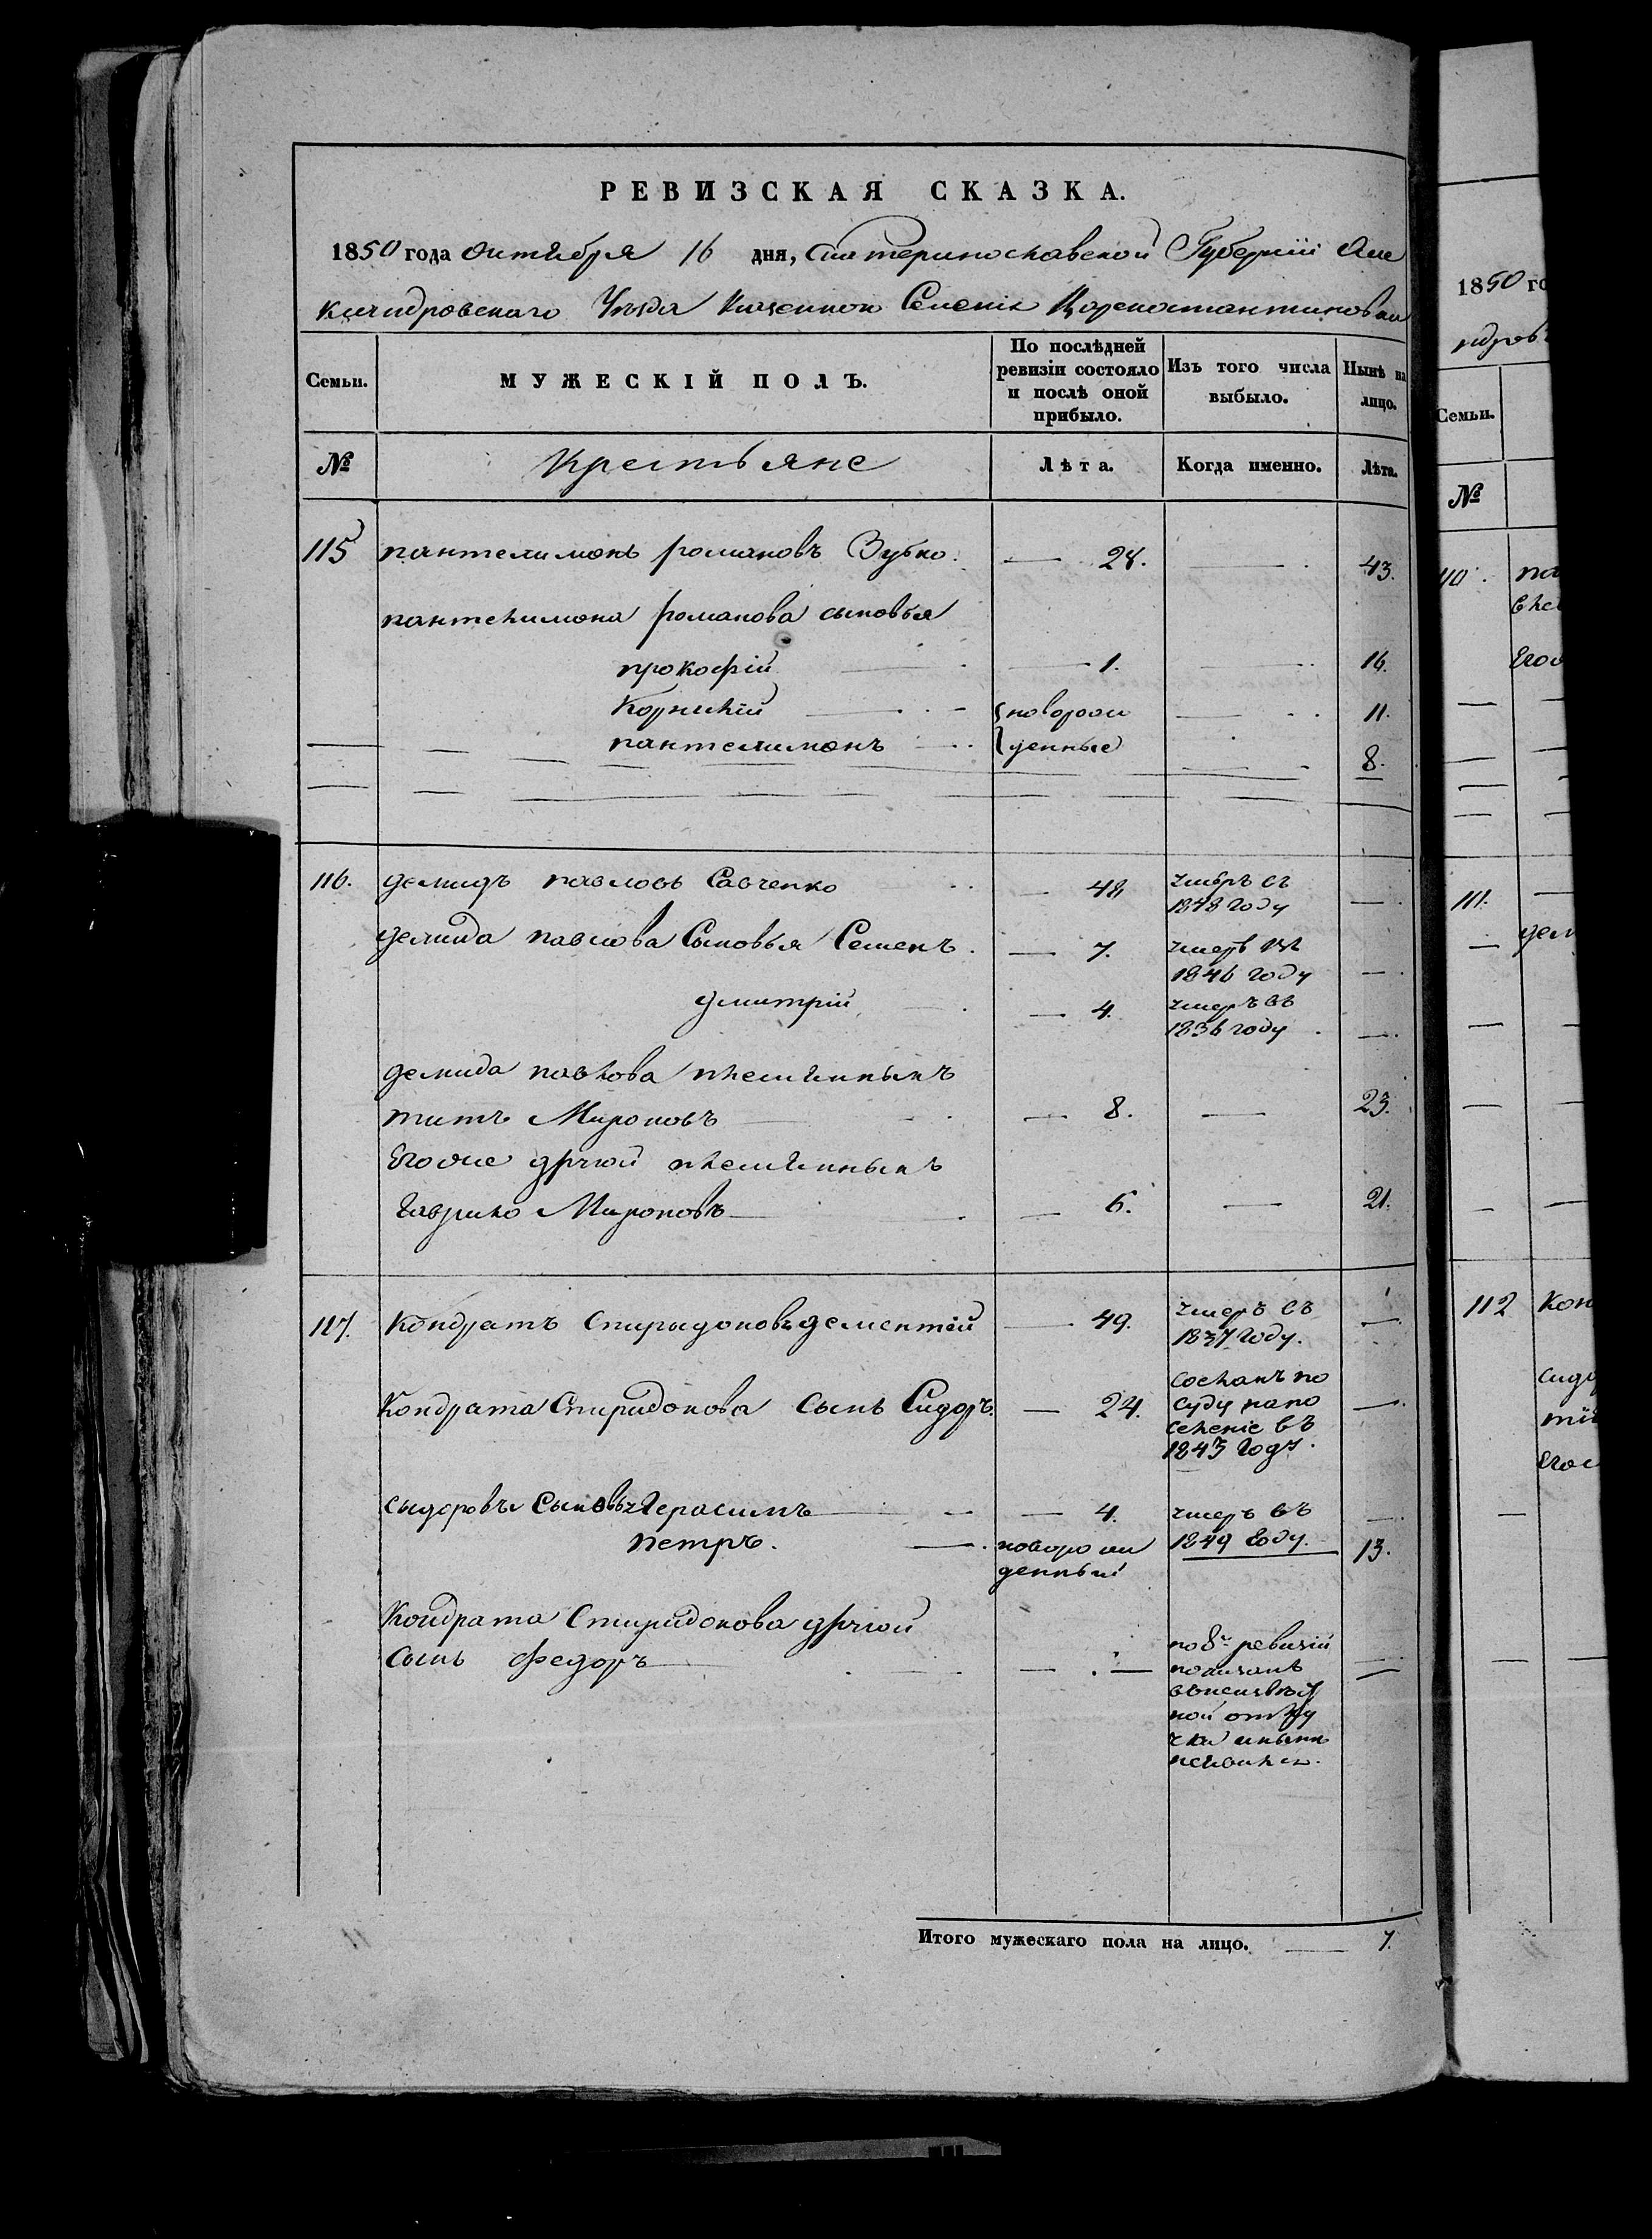 РЕВИЗСКАЯ СКАЗКА.
1850 года Октября 16 дня, Екатеринославской Губерніи Але
ксандровскаго Уѣзда Казенного Селенія Цареконстантиновки
Семьи. МУЖЕСКІЙ ПОЛЪ. По послѣдней ревизіи состояло и послѣ оной прибыло. Изъ того числа выбыло. Нынѣ на лицо.
№ Крестьяне Лѣта. Когда именно. Лѣта.
115 пантелимонъ романовъ Зубко. — 28. — 43.
пантелимона романова сыновья
прокофій — 1. — 16.
Корнилій новорож — 11.
пантелимонъ денные — 8.
116. демидъ павловъ Савченко — 48 умеръ въ
1848 году —
демида павлова Сыновья Семенъ. — 7. умеръ въ
1846 году —
дмитрій — 4. умеръ въ
1836 году —
демида павлова племянныкъ
титъ Мироновъ — 8. — 23.
Егоже другой племянныкъ
Гаврило Мироновъ — 6. — 21.
117. Кондратъ Спиридоновъ дементій — 49. умеръ въ
1837 году. —
Кондрата Спиридонова сынъ Сидоръ. — 24. сосланъ по
суду на по
селеніе въ
1843 году. —
сыдоровы Сыновья Герасимъ — 4. умеръ въ
1849 году. —
петръ. — новорож
денный 13.
Кондрата Спиридонова другой
сынъ Федоръ — по 8й ревизіи
показанъ
ной отлу
чки
Итого мужескаго пола на лицо. — 7.
1850 го
ндров
Семьи.
№
110.
111.
112 Кон